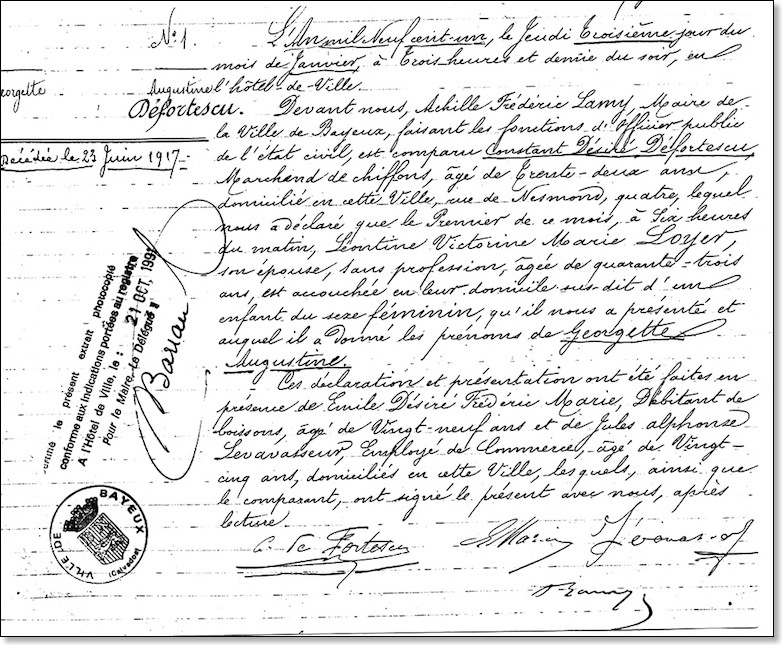 N° 1.
Georgette
Augustine
Défortescu.
Décédée le 23 Juin 1917
L'An mil Neuf cent-un, le Jeudi Troisième jour du
mois de Janvier, à Trois heures et demie du soir, en
l'hôtel-de-Ville.
Devant nous, Achille Frédéric Lamy, Maire de
la Ville de Bayeux, faisant les fonctions d'Officier public
de l'état civil, est comparu Constant Désiré Défortescu,
Marchand de chiffons, âgé de Trente-deux ans,
domicilié en cette Ville, rue de Nesmond, quatre, lequel
nous a déclaré que le Premier de ce mois, à Six heures
du matin, Léontine Victorine Marie Loyer,
son épouse, sans profession, âgée de quarante-trois
ans, est accouchée en leur domicile sus-dit d'un
enfant du sexe féminin, qu'il nous a présenté et
auquel il a donné les prénoms de Georgette
Augustine.
Ces déclaration et présentation ont été faites en
présence de Emile Désiré Frédéric Marie, Débitant de
boissons, âgé de Vingt-neuf ans et de Jules alphonse
Levavasseur, Employé de Commerce, âgé de Vingt-
cinq ans, domiciliés en cette Ville, lesquels, ainsi que
le comparant, ont signé le présent avec nous, après
lecture.
C. de Fortescu
le présent extrait photocopié
conforme aux indications portées au registre
A l'Hôtel de Ville, le : 21 OCT. 199
Pour le Maire, Le Délégué
VILLE DE BAYEUX
(Calvados)